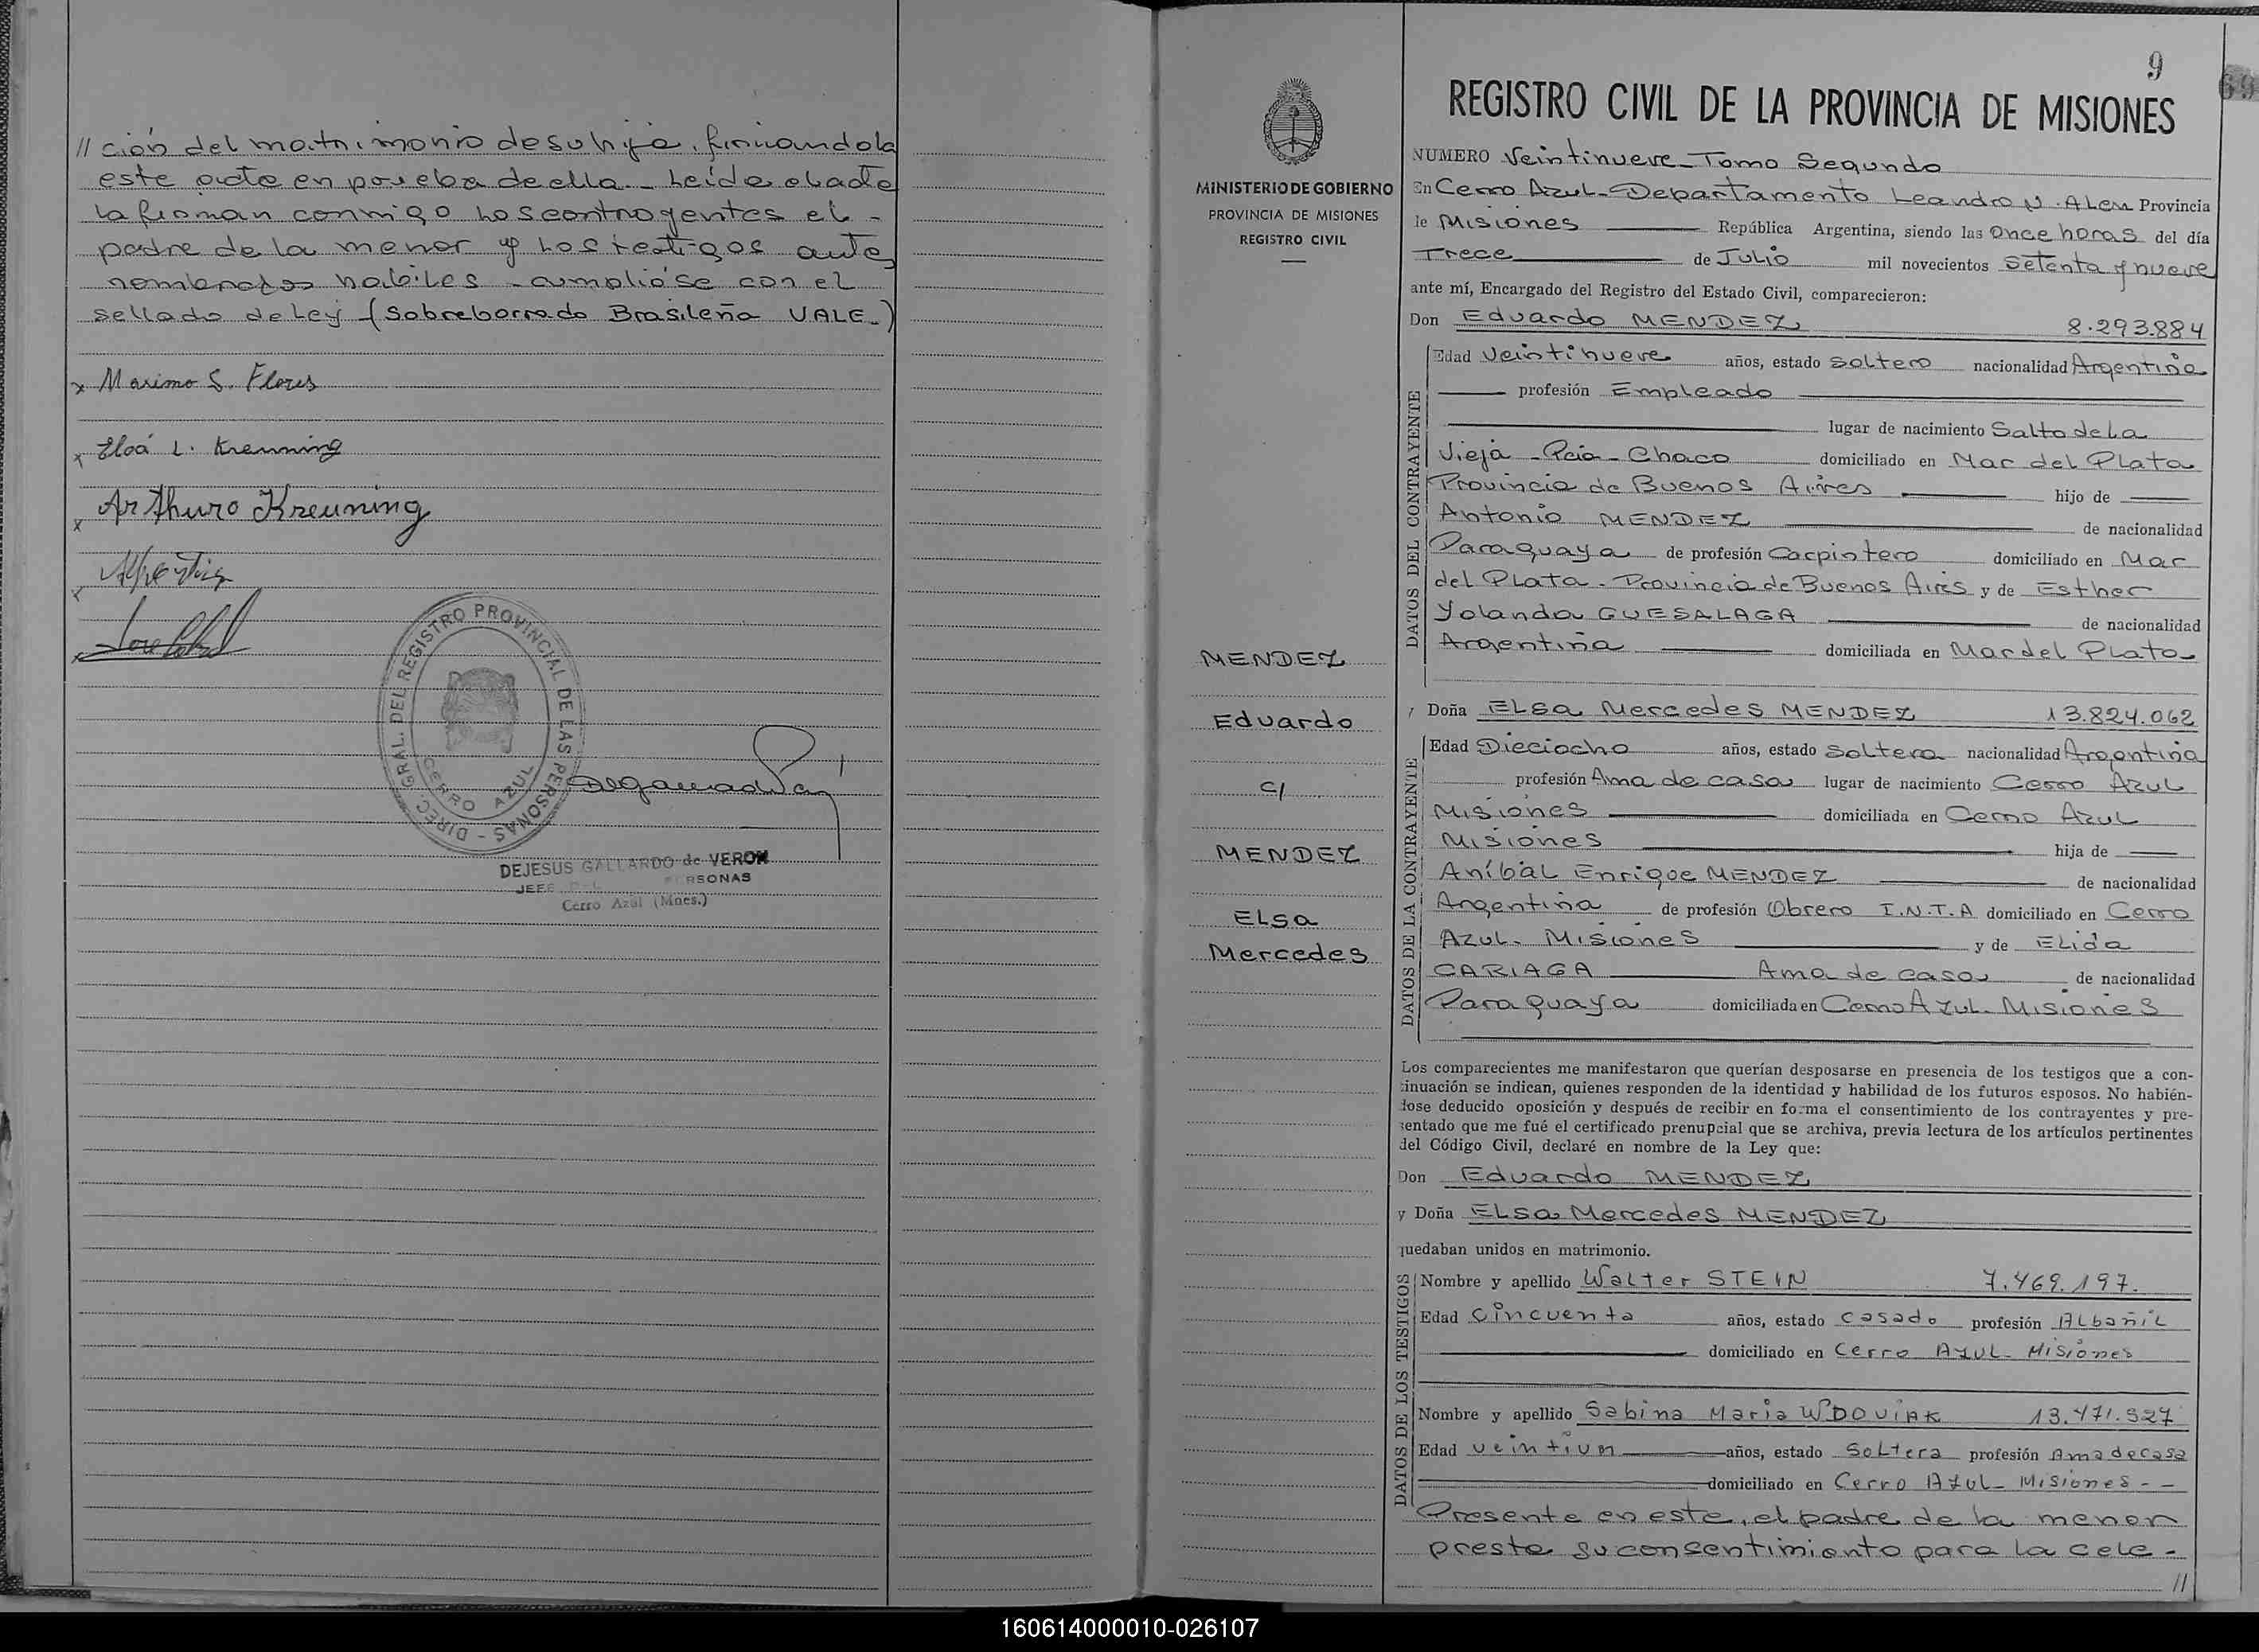 // ción del matrimonio de su hija, firmandola
este acta en prueba de ella. Leída el acta
la firman conmigo los contrayentes el -
padre de la menor y los testigos ante
nombrados habiles - cumplióse con el
sellado de Ley (Sobreborrado Brasileña VALE.)
x Maximo S. Flores
x Eloá L. Kreuning
x Arthuro Kreuning
x
x
DIREC. GRAL. DEL REGISTRO PROVINCIAL DE LAS PERSONAS -
CERRO AZUL
DEJESUS GALLARDO de VERON
JEFE PERSONAS
Cerro Azul (Mnes.)
MINISTERIO DE GOBIERNO
PROVINCIA DE MISIONES
REGISTRO CIVIL
MENDEZ
Eduardo
c/
MENDEZ
ELsa
Mercedes
9
69
REGISTRO CIVIL DE LA PROVINCIA DE MISIONES
NUMERO Veintinueve - Tomo Segundo
En Cerro Azul - Departamento Leandro N. ALem Provincia
de Misiones República Argentina, siendo las Once horas del día
Trece de Julio mil novecientos Setenta y nueve
ante mí, Encargado del Registro del Estado Civil, comparecieron:
Don Eduardo MENDEZ 8.293.884
DATOS DEL CONTRAYENTE
Edad Veintinueve años, estado soltero nacionalidad Argentina
profesión Empleado
lugar de nacimiento Salto de La
Vieja - Pcia - Chaco domiciliado en Mar del Plata
Provincia de Buenos Aires hijo de
Antonio MENDEZ de nacionalidad
Paraguaya de profesión Carpintero domiciliado en Mar
del Plata - Provincia de Buenos Aires y de Esther
Yolanda GUESALAGA de nacionalidad
Argentina domiciliada en Mar del Plata
y Doña ELsa Mercedes MENDEZ 13.824.062
DATOS DE LA CONTRAYENTE
Edad Dieciocho años, estado soltera nacionalidad Argentina
profesión Ama de casa lugar de nacimiento Cerro Azul
Misiones domiciliada en Cerro Azul
Misiones hija de
Aníbal Enrique MENDEZ de nacionalidad
Argentina de profesión Obrero I.N.T.A domiciliado en Cerro
Azul - Misiones y de Elida
CARIAGA Ama de casa de nacionalidad
Paraguaya domiciliada en Cerro Azul - Misiones
Los comparecientes me manifestaron que querían desposarse en presencia de los testigos que a con-
tinuación se indican, quienes responden de la identidad y habilidad de los futuros esposos. No habién-
dose deducido oposición y después de recibir en forma el consentimiento de los contrayentes y pre-
sentado que me fué el certificado prenupcial que se archiva, previa lectura de los artículos pertinentes
del Código Civil, declaré en nombre de la Ley que:
Don Eduardo MENDEZ
y Doña ELsa Mercedes MENDEZ
quedaban unidos en matrimonio.
DATOS DE LOS TESTIGOS
Nombre y apellido Walter STEIN 7.469.197.
Edad Cincuenta años, estado casado profesión ALbañiL
domiciliado en Cerro AzuL - Misiones
Nombre y apellido Sabina Maria WDOVIAK 13.471.527
Edad veintiun años, estado SoLtera profesión Ama de casa
domiciliado en Cerro AzuL - Misiones - -
Presente en este, el padre de la menor
presta su consentimiento para la cele -
//
160614000010-026107